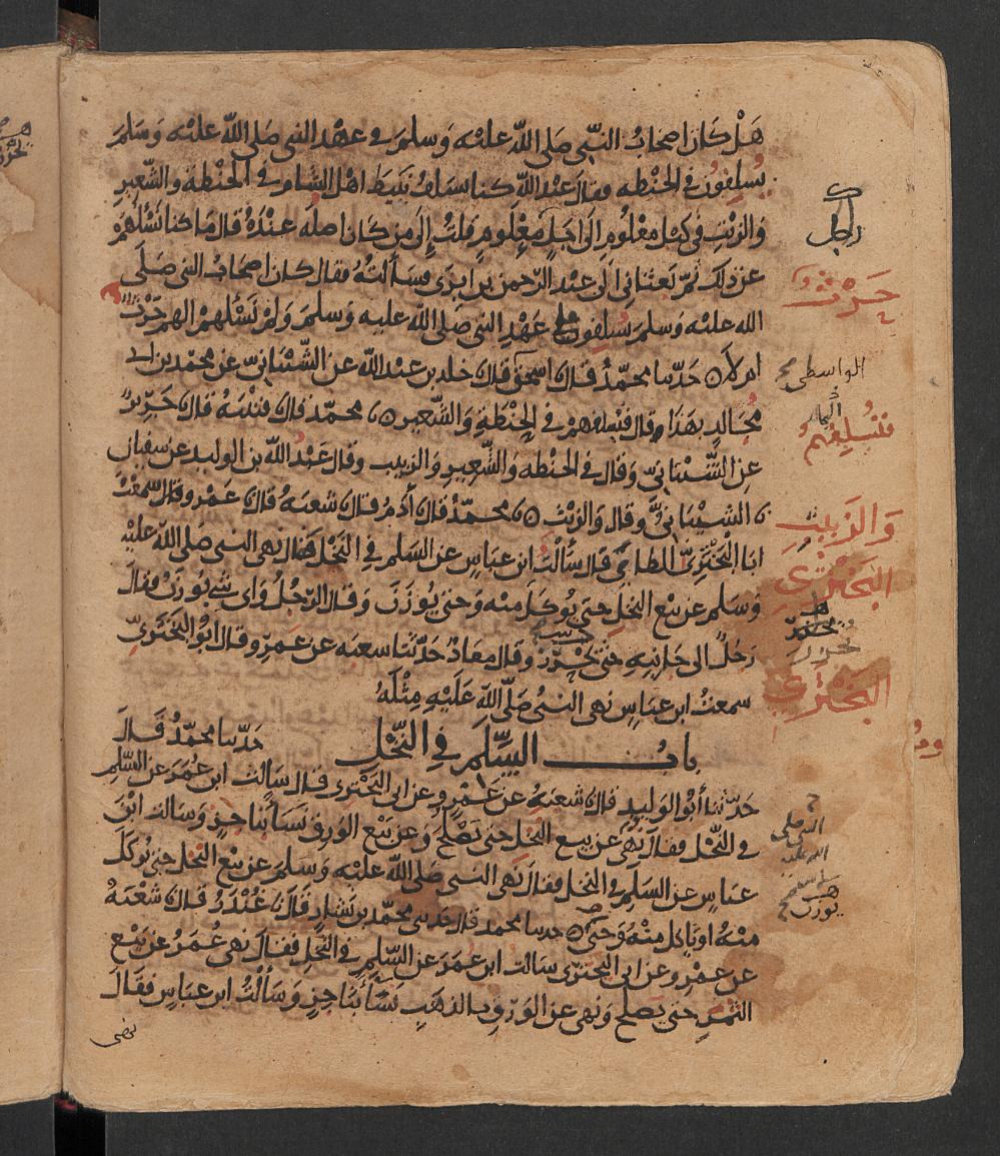 هَلْ كَانَ اصحابُ النَّبِيِّ صَلى اللّه عليْه وَسلمَ في عهْد النبي صَلى اللّه عليْه وَسَلمَ
يُسلِفونَ في الحنْطه فقال عَبْدُ اللّه كنا نسلفُ نَبيطَ اهْل الشام في الحنْطة والشّعيرِ
وَالزيْتِ في كيل معْلُومٍ الَى اجَلٍ مَعْلومٍ قلتُ إِلَى من كان اصلهُ عنْدَهُ قال مَا كنا نَسْئلُهُمْ
عن ذلك ثمّ بعثانِي الَى عبْد الرّحمن بن ابزَى فسَأَلتهُ فقال كان اصحابُ النبي صَلى
الله عليْه وَسلمَ يُسلِفونَ على عَهْدِ النبي صَلى اللّه عليه وَسلمَ وَلمْ نَسْئلهمْ الهم حَرْثٌ
ام لا ه حَدّثنا محمّدٌ قال اسحقُ قال خلد بن عبْد اللّه عن الشّيْبَانيّ عن محمّد بن ابي
مُجَالدٍ بهَذَا وقال فنُسلفهمْ في الحِنْطةِ وَالشّعير ه نا محمّد قال قتيْبَةُ قال جَريرٌ
عن الشّيْبَانيّ وَقال في الحنطه وَالشّعيرِ وَالزبيب وقال عَبْدُ اللّه بن الوليد عن سفيان
نا الشيْبَانيُّ وقال وَالزيْت ه نا محمّدٌ قال آدَمُ قال شعبَة قال عَمْرو قال سمعْتُ
ابا الْبَخْتَرِيّ الطائي قال سَأَلتُ ابن عبّاسٍ عن السَلم في النخل فقال نهى النبي صَلى اللّه عليْهِ
وَسلم عن بيْع النخل حتى يُوكَلَ منه وَحتى يُوزَنَ وَقال الرّجُلُ وَاي شيْ يُوزَنُ فقال
رَجُلٌ الى جَانبِهِ حتى يُحْرَزَ وقال معَاذٌ حَدّثنا شعبَه عن عمرٍو قال ابُو البَخْتَرِيّ
سمعتُ ابن عبّاسٍ نهى النبيُّ صَلّى اللّه عَلَيْهِ مِثْلَهُ
بابُ السَّلَم في النَّخل حَدّثنا محمّدٌ قَالَ
حَدّثنا أبُو الوَليدِ قال شعْبَةُ عن عَمْرٍو عن ابي البَخْتري قال سَألت ابن عُمَرَ عن السَّلمِ
في النّخْل فقال نُهِيَ عن بيع النخل حتى يَصْلحَ وَعن بَيْع الوَرِق نَسَاءً بنَاجِزٍ وَسَألت ابْنَ
عَبّاسٍ عن السَلم في النخل فقال نَهى النبي صَلى اللّه عليْه وَسَلمَ عن بيْع النخل حتى يُوكلَ
منْهُ او يَاكل منْه وَحتى ه حدثنا محمد قال حدثني محمّد بن بشّارٍ قال نا غُنْدَرٌ قال شعْبَةُ
عن عمْرٍو عن ابي البختري سَألت ابن عمَرَ عن السَّلم في النخل فقال نهى عُمَرُ عن بيْع
الثمَر حتى يَصلح وَنهى عن الوَرِق بالذهَبِ نَسَاءً بنَاجِزٍ وَسَألْتُ ابن عبّاسٍ فقَالَ
نهى
حَرْثٌ
الواسطي
فنُسْلِفهُم
وَالزبيبِ
البَخْتَرِي
البَخْتَرِي
النبي صلى
الله عليه
يوزن